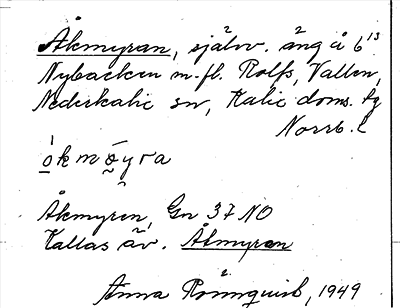 Åkmyran, självv. äng å 6¹³
Nybäcken m. fl. Rolfs, Vallen,
Nederkalix sn, Kalix doms. tg
Norrb. l
ò̱kmó̱yra
Åkmyren, Gn 37 NO
Kallas äv. Åkmyran
Anna Rönnqvist, 1949